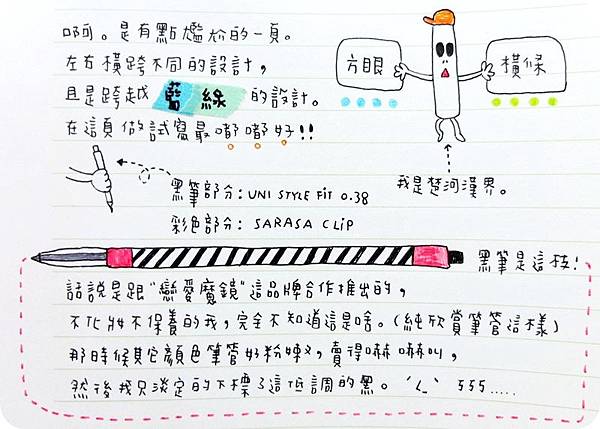 啊。是有點尷尬的一頁。
左右橫跨不同的設計，
且是跨越藍綠的設計。
在這頁做試寫最嘟嘟好!!
方眼
橫條
我是楚河漢界。
黑筆部分：UNI STYLE FIT 0.38
彩色部分：SARASA CLIP
黑筆是這枝!
話說是跟"戀愛魔鏡"這品牌合作推出的，
不化妝不保養的我，完全不知道這是啥。(純欣賞筆管這樣)
那時候其它顏色筆管好粉嫩，賣得嚇嚇叫，
然後我只淡定的下標了這低調的黑。ˊ<_ˋ 555.....